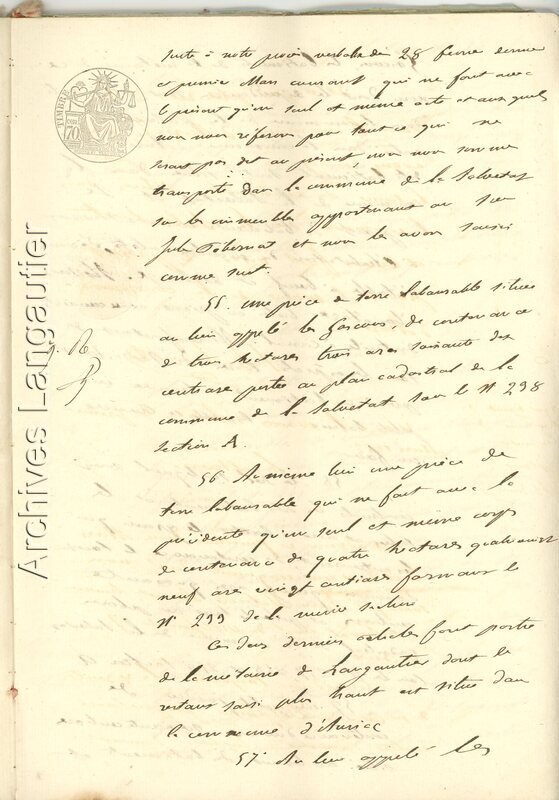 suite à notre procès verbal des 28 fevrier dernier
et premier Mars courant qui ne font avec
le présent qu'un seul et même acte et auxquels
nous nous référons pour tout ce qui ne
serait pas dit au présent, nous nous sommes
transporté dans la commune de la Salvetat
sur les immeubles appartenant au sieur
Jules et nous les avons saisis
comme suit.
55. une pièce de terre labourable située
au lieu appelé les Gascous, de contenance
de trois hectares trois ares soixante dix
centiares portée au plan cadastral de la
commune de la Salvetat sous le N° 238
section A.
56 Au même lieu une pièce de
terre labourable qui ne fait avec la
précédente qu'un seul et même corps
de contenance de quatre hectares quatrevingt
neuf ares vingt centiares formant le
N° 239 de la même section
Ces deux derniers articles font partie
de la métairie de Langautier dont le
restant saisi plus haut est situé dans
la commune d'Auriac
57° Au lieu appelé les
TIMBRE
70
Archives Langautier